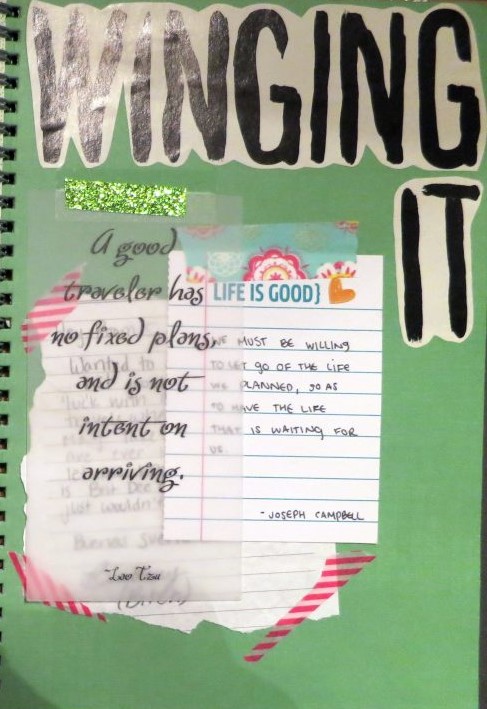 WINGING
IT
A good
traveler has
no fixed plans,
and is not
intent on
arriving.
~Lao Tzu
LIFE IS GOOD}
WE MUST BE WILLING
TO LET GO OF THE LIFE
WE PLANNED, SO AS
TO HAVE THE LIFE
THAT IS WAITING FOR
US.
-JOSEPH CAMPBELL
Wanted to
just wouldn't